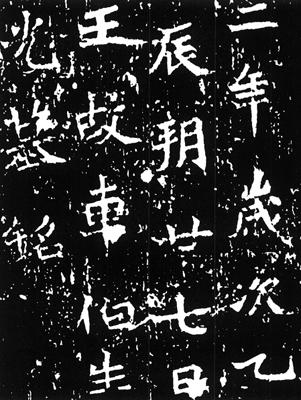 二年歲次乙
辰朔廿七日
王故車伯生
光墓銘